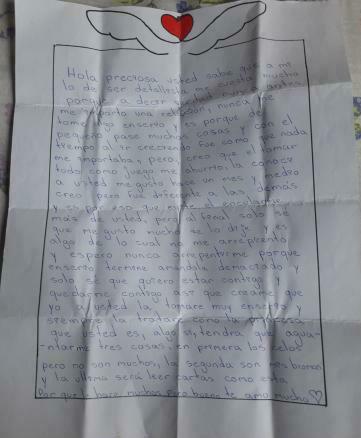 Hola preciosa usted sabe que a mi
lo de ser detallista me cuesta mucha
porque a decir verdad nunca antes
me importo una relación, nunca me
tome algo enserio y es porque de
pequeño pase muchas casas y con el
tiempo al ir creciendo fue como que nada
me importaba, pero, creo que el tomar
todo como juego me aburrio, la conocí
a usted me gusto hace un mes y medio
creo pero fue diferente a las demás
y es por eso que
más de usted, pero al final solo se
que me gusto mucho se lo dije y es
algo de lo cual no me arrepiento
y espero nunca arrepentirme porque
enserio termine amandola demaciado y
solo se que quiero estar contigo y
quedarme contigo asi que creame que
yo a usted la tomare muy enserio y
siempre la tratare como la princesa
que usted es, algo si, tendra que agua-
-ntarme tres casas, en primera los celos
pero no son muchos, la segunda son mis bromas
y la ultima será leer cartas como esta
Porque le hare muchas Pero bueno te amo mucho